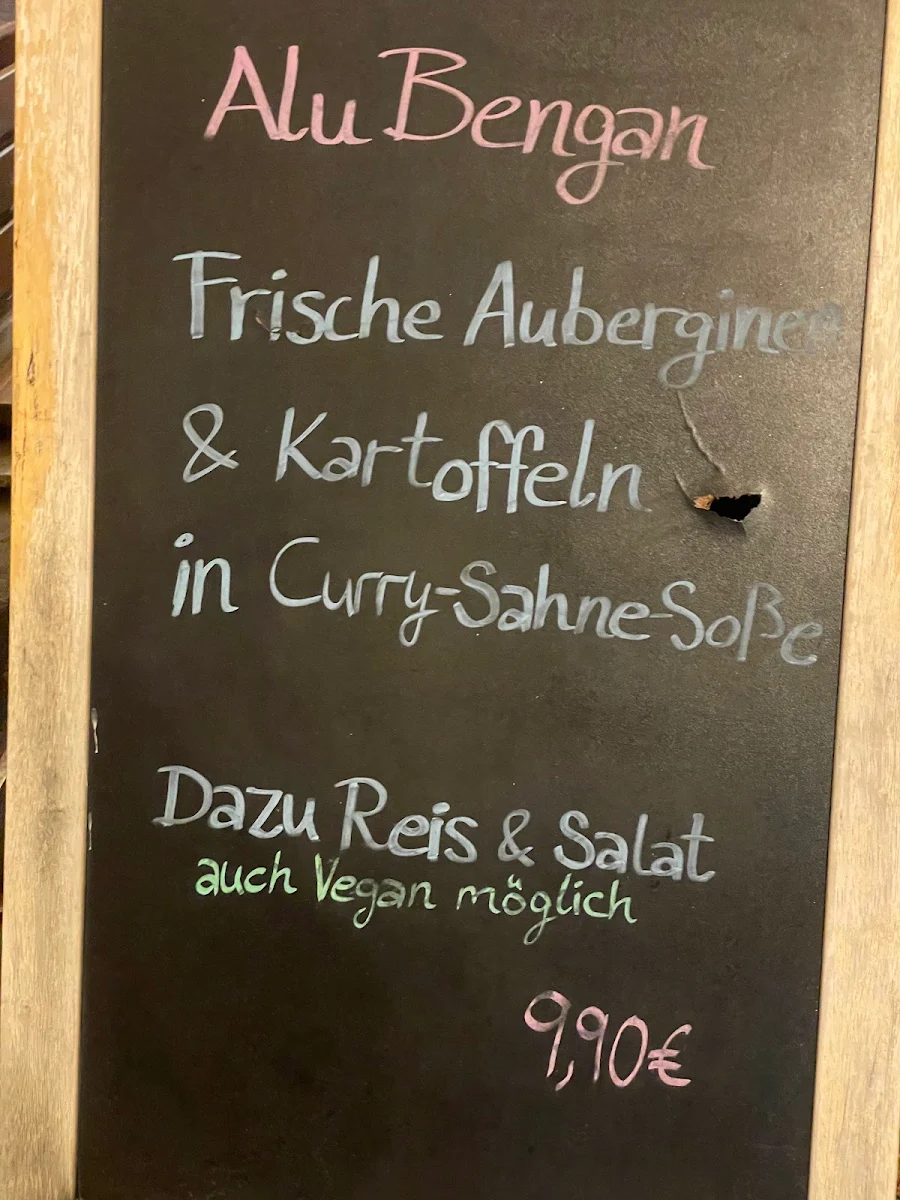 Alu Bengan
Frische Auberginen
& Kartoffeln
in Curry-Sahne-Soße
Dazu Reis & Salat
auch Vegan möglich
9,90€